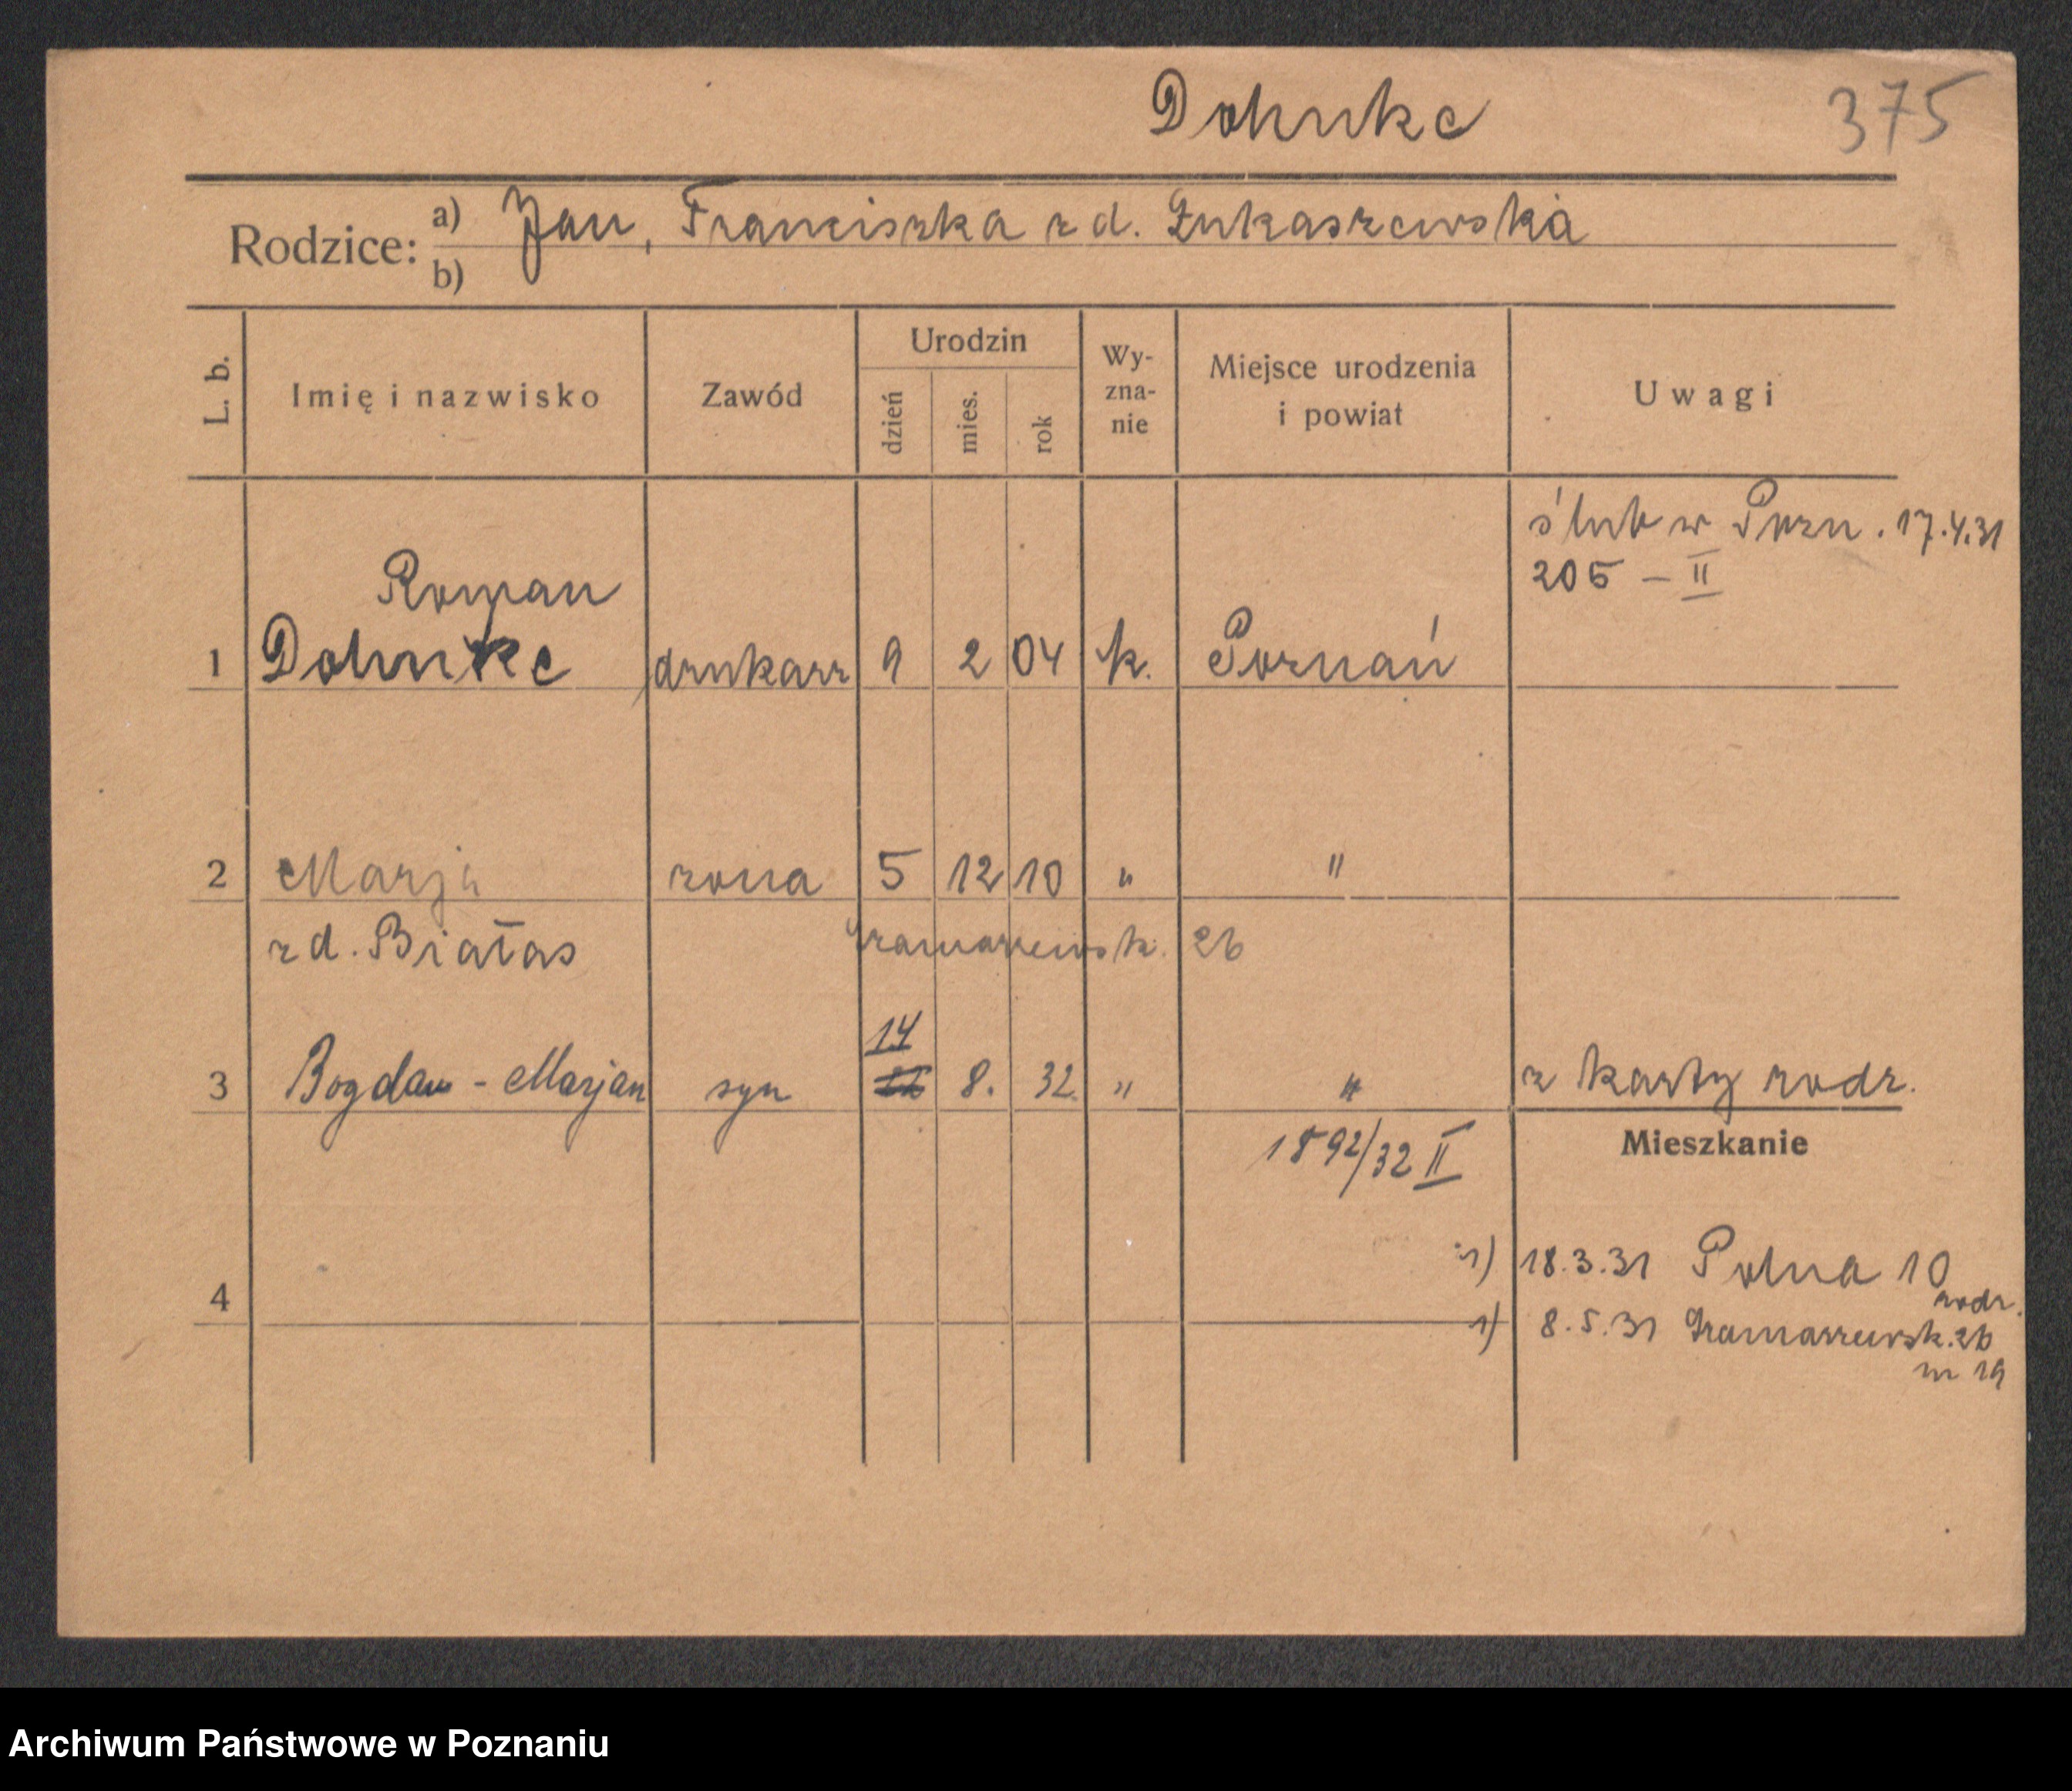 Dohnke 375
Rodzice: a) Jan, Franciszka z d. Łukaszewska
b)
L. b. Imię i nazwisko Zawód Urodzin dzień mies. rok Wy-zna-nie Miejsce urodzenia i powiat Uwagi
ślub w Pozn. 17.4.31
205 – II
Roman
1 Dohnke drukarz 9 2 04 k. Poznań
2 Marja żona 5 12 10 " "
z d. Białas Gramaszewsk. 26
14
3 Bogdan - Marjan syn 8. 32. " " z karty rodz.
1892/32 II
Mieszkanie
1) 18.3.31 Polna 10
rodz.
4
1) 8.5.31 Gramaszewsk. 26
m 19
Archiwum Państwowe w Poznaniu